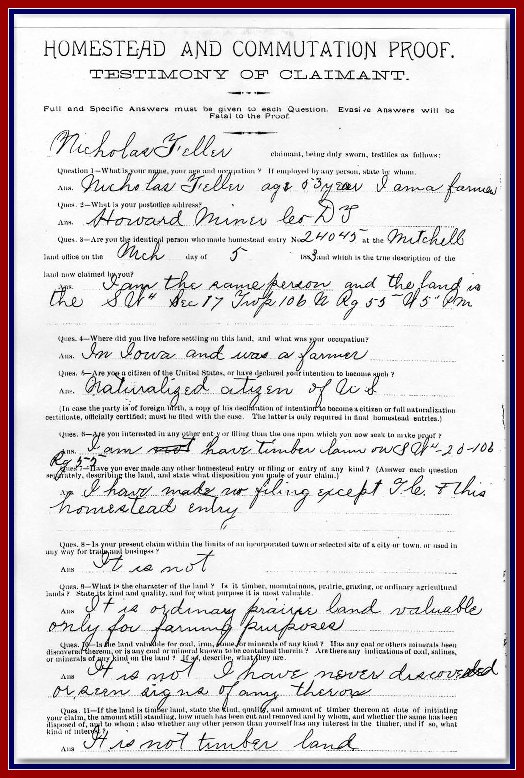 HOMESTEAD AND COMMUTATION PROOF.
TESTIMONY OF CLAIMANT.
Full and Specific Answers must be given to each Question. Evasive Answers will be
Fatal to the Proof.
Nicholas Feller claimant, being duly sworn, testifies as follows:
Question 1—What is your name, your age and occupation? If employed by any person, state by whom.
Ans. Nicholas Feller age 53 year I am a farmer
Ques. 2—What is your postoffice address?
Ans. Howard Miner Co D T
Ques. 3—Are you the identical person who made homestead entry No. 24045 at the Mitchell
land office on the Mch day of 5 1883 and which is the true description of the
land now claimed by you?
Ans. I am the same person and the land is
the S W4 Sec 17 Twp 106 N Rg 55 W 5 Pm
Ques. 4—Where did you live before settling on this land, and what was your occupation?
Ans. In Iowa and was a farmer
Ques. 5—Are you a citizen of the United States, or have declared your intention to become such?
Ans. Naturalized citizen of U S
(In case the party is of foreign birth, a copy of his declaration of intention to become a citizen or full naturalization
certificate, officially certified; must be filed with the case. The latter is only required in final homestead entries.)
Ques. 6—Are you interested in any other entry or filing than the one upon which you now seek to make proof?
Ans. I am not have timber claim on S W4 - 20 - 106
Rg 55
Ques. 7—Have you ever made any other homestead entry or filing or entry of any kind? (Answer each question
separately, describing the land, and state what disposition you made of your claim.)
Ans I have made no filing except T.C. & this
homestead entry
Ques. 8—Is your present claim within the limits of an incorporated town or selected site of a city or town, or used in
any way for trade and business?
Ans It is not
Ques. 9—What is the character of the land? Is it timber, mountainous, prairie, grazing, or ordinary agricultural
lands? State its kind and quality, and for what purpose it is most valuable.
Ans It is ordinary prairie land valuable
only for farming purposes
Ques. 10—Is the land valuable for coal, iron, stone or minerals of any kind? Has any coal or others minerals been
discovered thereon, or is any coal or mineral known to be contained therein? Are there any indications of coal, salines,
or minerals of any kind on the land? If so, describe, what they are.
Ans It is not I have never discovered
or seen signs of any theron
Ques. 11—If the land is timber land, state the kind, quality, and amount of timber thereon at date of initiating
your claim, the amount still standing, how much has been cut and removed and by whom, and whether the same has been
disposed of, and to whom; also whether any other person than yourself has any interest in the timber, and if so, what
kind of interest?
Ans It is not timber land